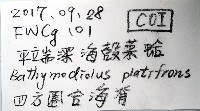 2017.09.28
COI
FWCg 101
平端深海殼菜蛤
Bathymodiolus platifrons
四方圈合海脊